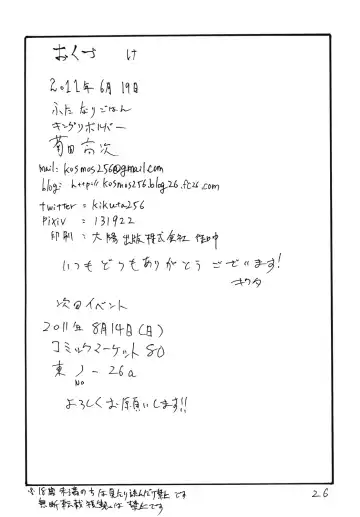 おくづけ
2011年6月19日
ふたなりごはん
キングリボルバー
菊田高次
mail: kosmos256@gmail.com
blog: http://kosmos256.blog26.fc2.com
twitter = kikuta256
pixiv : 131922
印刷 : 大陽出版株式会社
いつもどうもありがとうございます!
キクタ
次回イベント
2011年8月14日(日)
コミックマーケット80
東ノ-26a
No
よろしくお願いします!!
26
※18歳未満の方は見たり読んだり禁止です
無断転載複製は禁止です